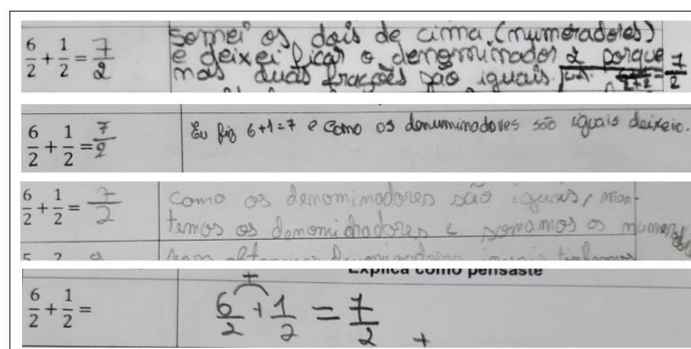 6/2 + 1/2 = 7/2
Somei os dois de cima (numeradores)
e deixei ficar o denominador 2 porque
nas duas frações são iguais. = 7/2
6/2 + 1/2 = 7/2
Eu fiz 6+1=7 e como os denuminadores são iguais deixei-o.
6/2 + 1/2 = 7/2
Como os denominadores são iguais, man-
temos os denominadores e somamos os numerado
Explica como pensaste
6/2 + 1/2 =
+
6/2 + 1/2 = 7/2
+